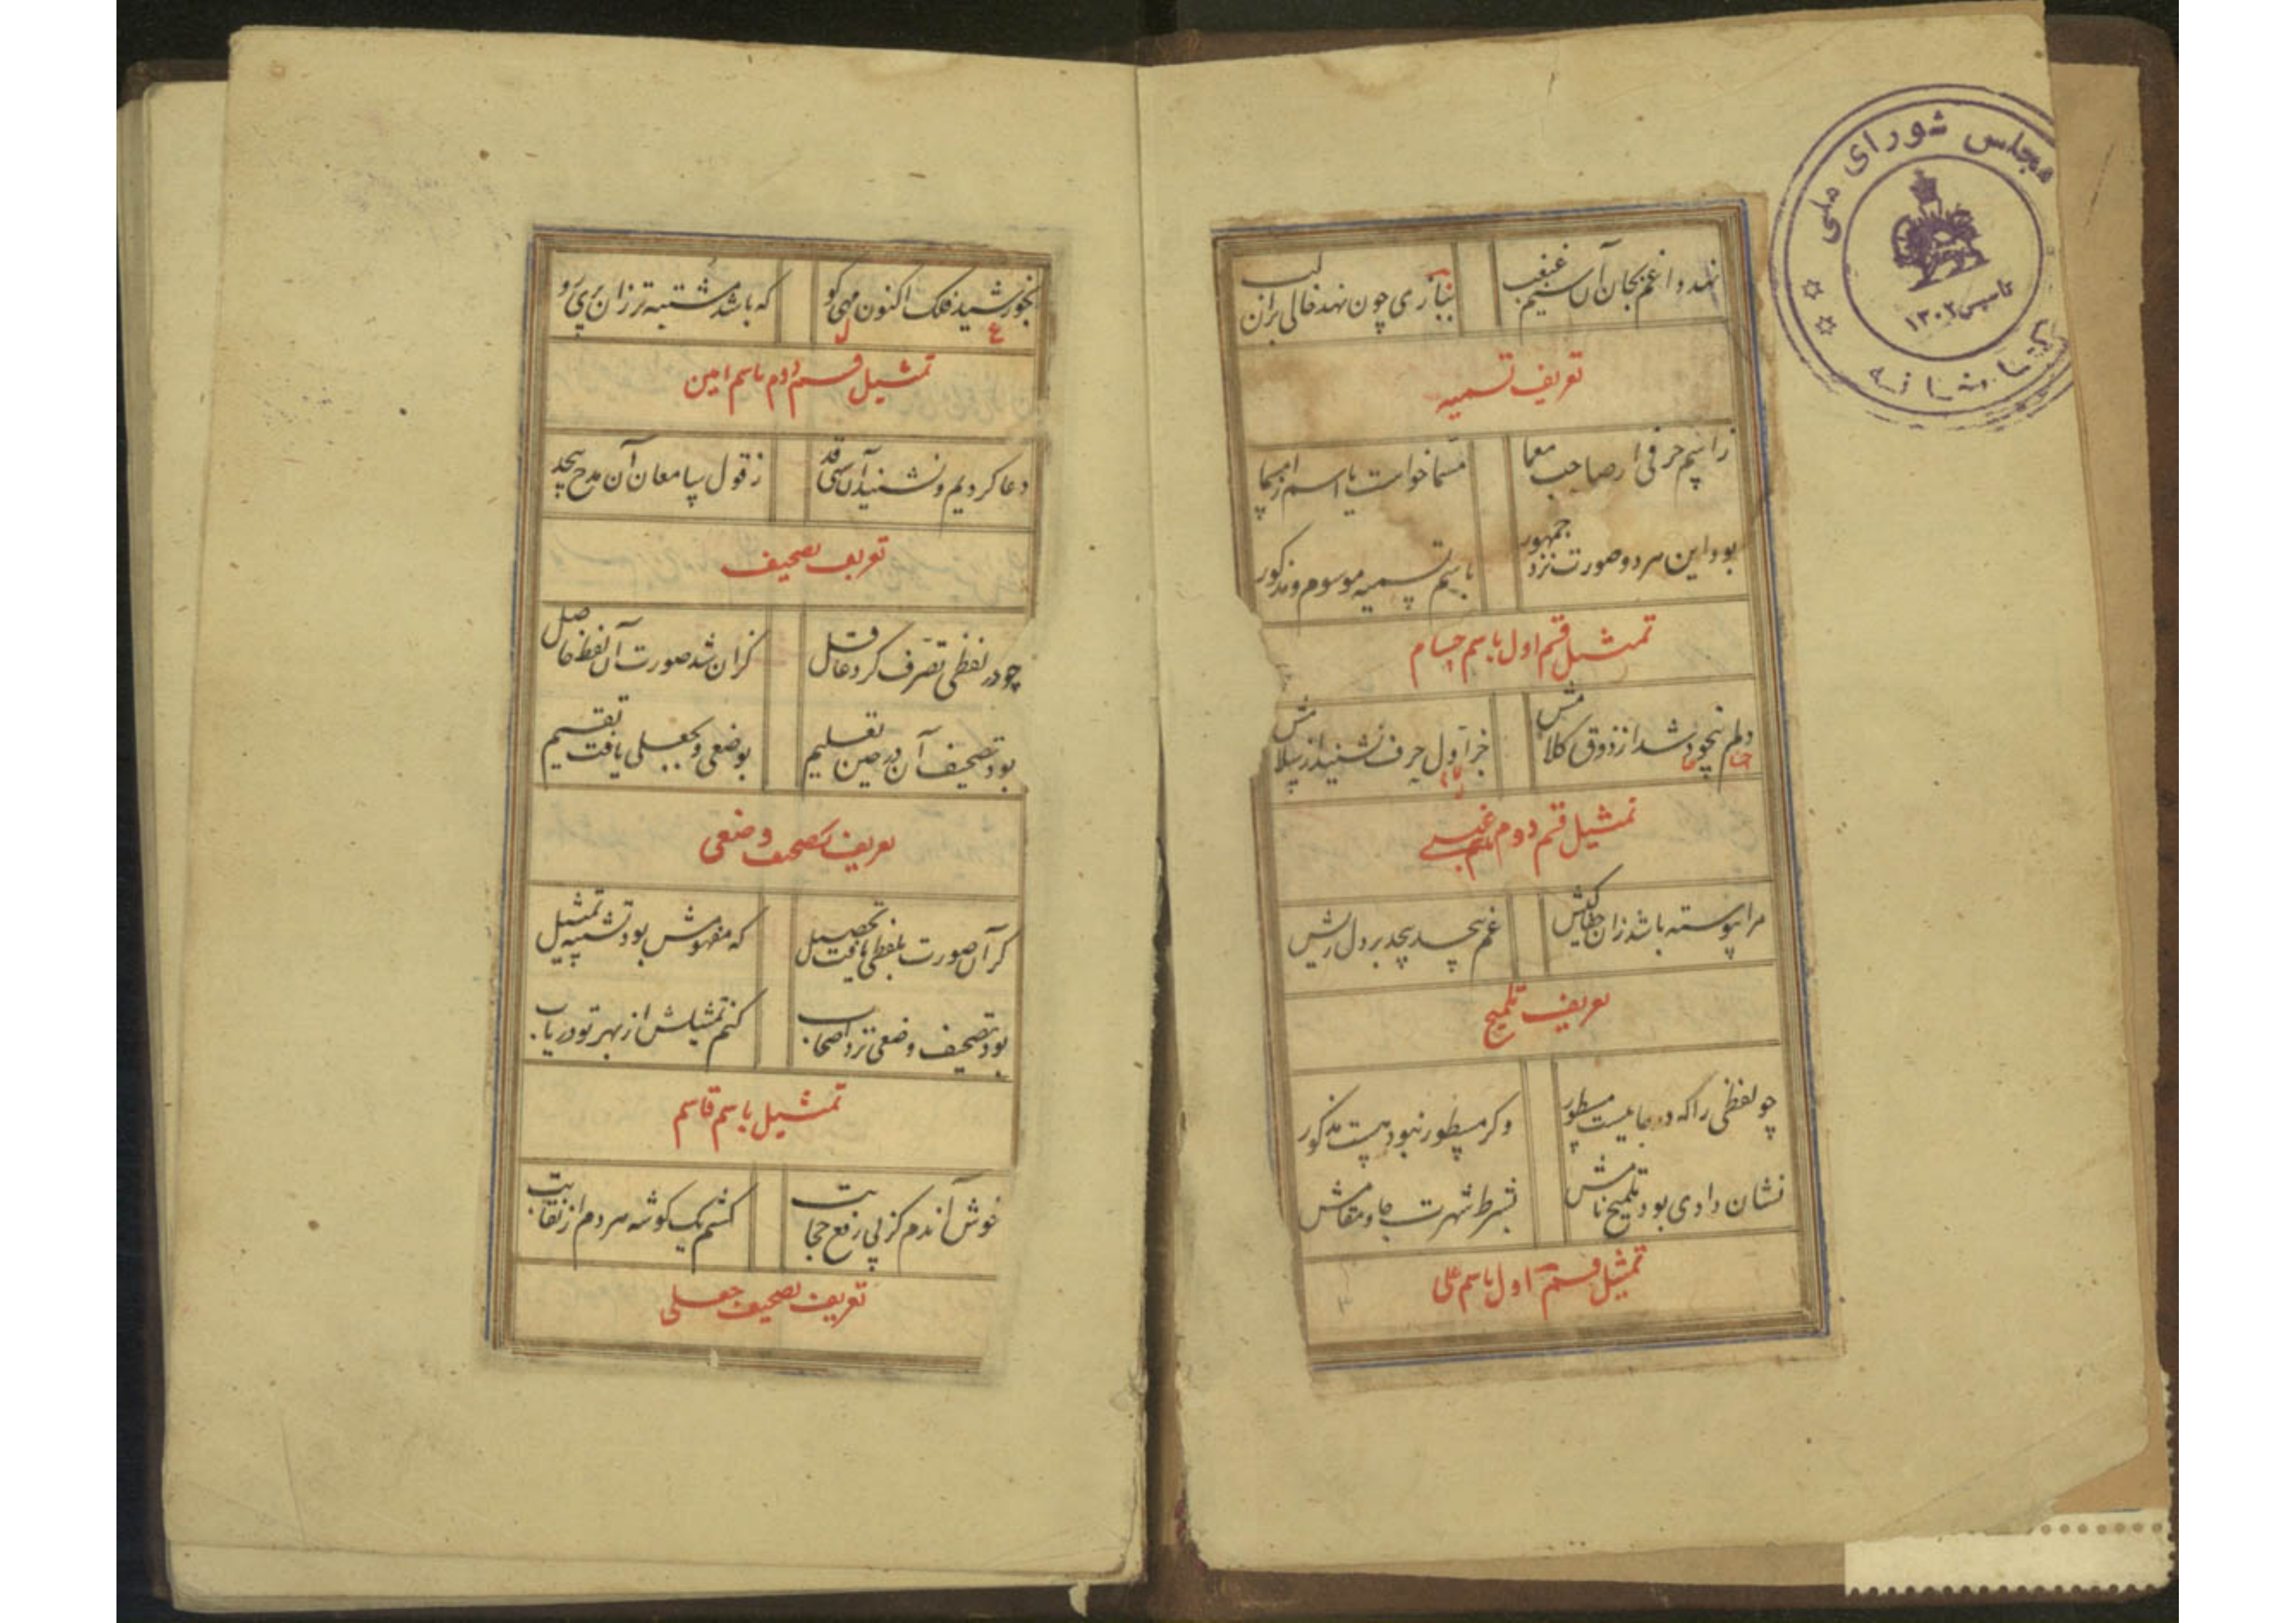 نهد داغم بجان آن سیم غبغب
بتاری چون نهد خالی بران لب
تعریف تسمیه
ز اسم حرفی ار صاحب معما
مسما خواست یا اسم از مسما
بود این هر دو صورت نزد جمهور
باسم تسمیه موسوم و مذکور
تمثیل قسم اول باسم حسام
دلم بیخود شد از ذوق کلامش
جز اول حرف نشنید از سلامش
تمثیل قسم دوم باسم غیبی
مرا پیوسته باشد زان جفا کیش
غم بیحد بیحد بر دل ریش
تعریف تلمیح
چو لفظی را که در جاییست مسطور
وکر مسطور نبود هست مذکور
نشان دادی بود تلمیح نامش
بشرط شهرت جا و مقامش
تمثیل قسم اول باسم علی
بخورشید فلک اکنون مهی کو
که باشد مشتبه تر زان پری رو
ع ل
تمثیل قسم دوم باسم امین
دعا کردیم و نشنید آن سهی قد
ز قول سامعان آن مدح بیحد
تعریف تصحیف
چو در لفظی تصرف کرد عاقل
کزان شد صورت آن لفظ حاصل
بود تصحیف آن در حین تعلیم
بوضعی و بجعلی یافت تقسیم
تعریف تصحیف وضعی
کر آن صورت بلفظی یافت تحصیل
که مفهومش بود تشبیه تمثیل
بود تصحیف وضعی نزد اصحاب
کنم تمثیلش از بهر تو دریاب
تمثیل باسم قاسم
خوش آندم کز پی رفع حجابت
کشم یک کوشه هر دم از نقابت
تعریف تصحیف جعلی
مجلس شورای ملی
تاسیس ۱۳۰۲
کتابخانه